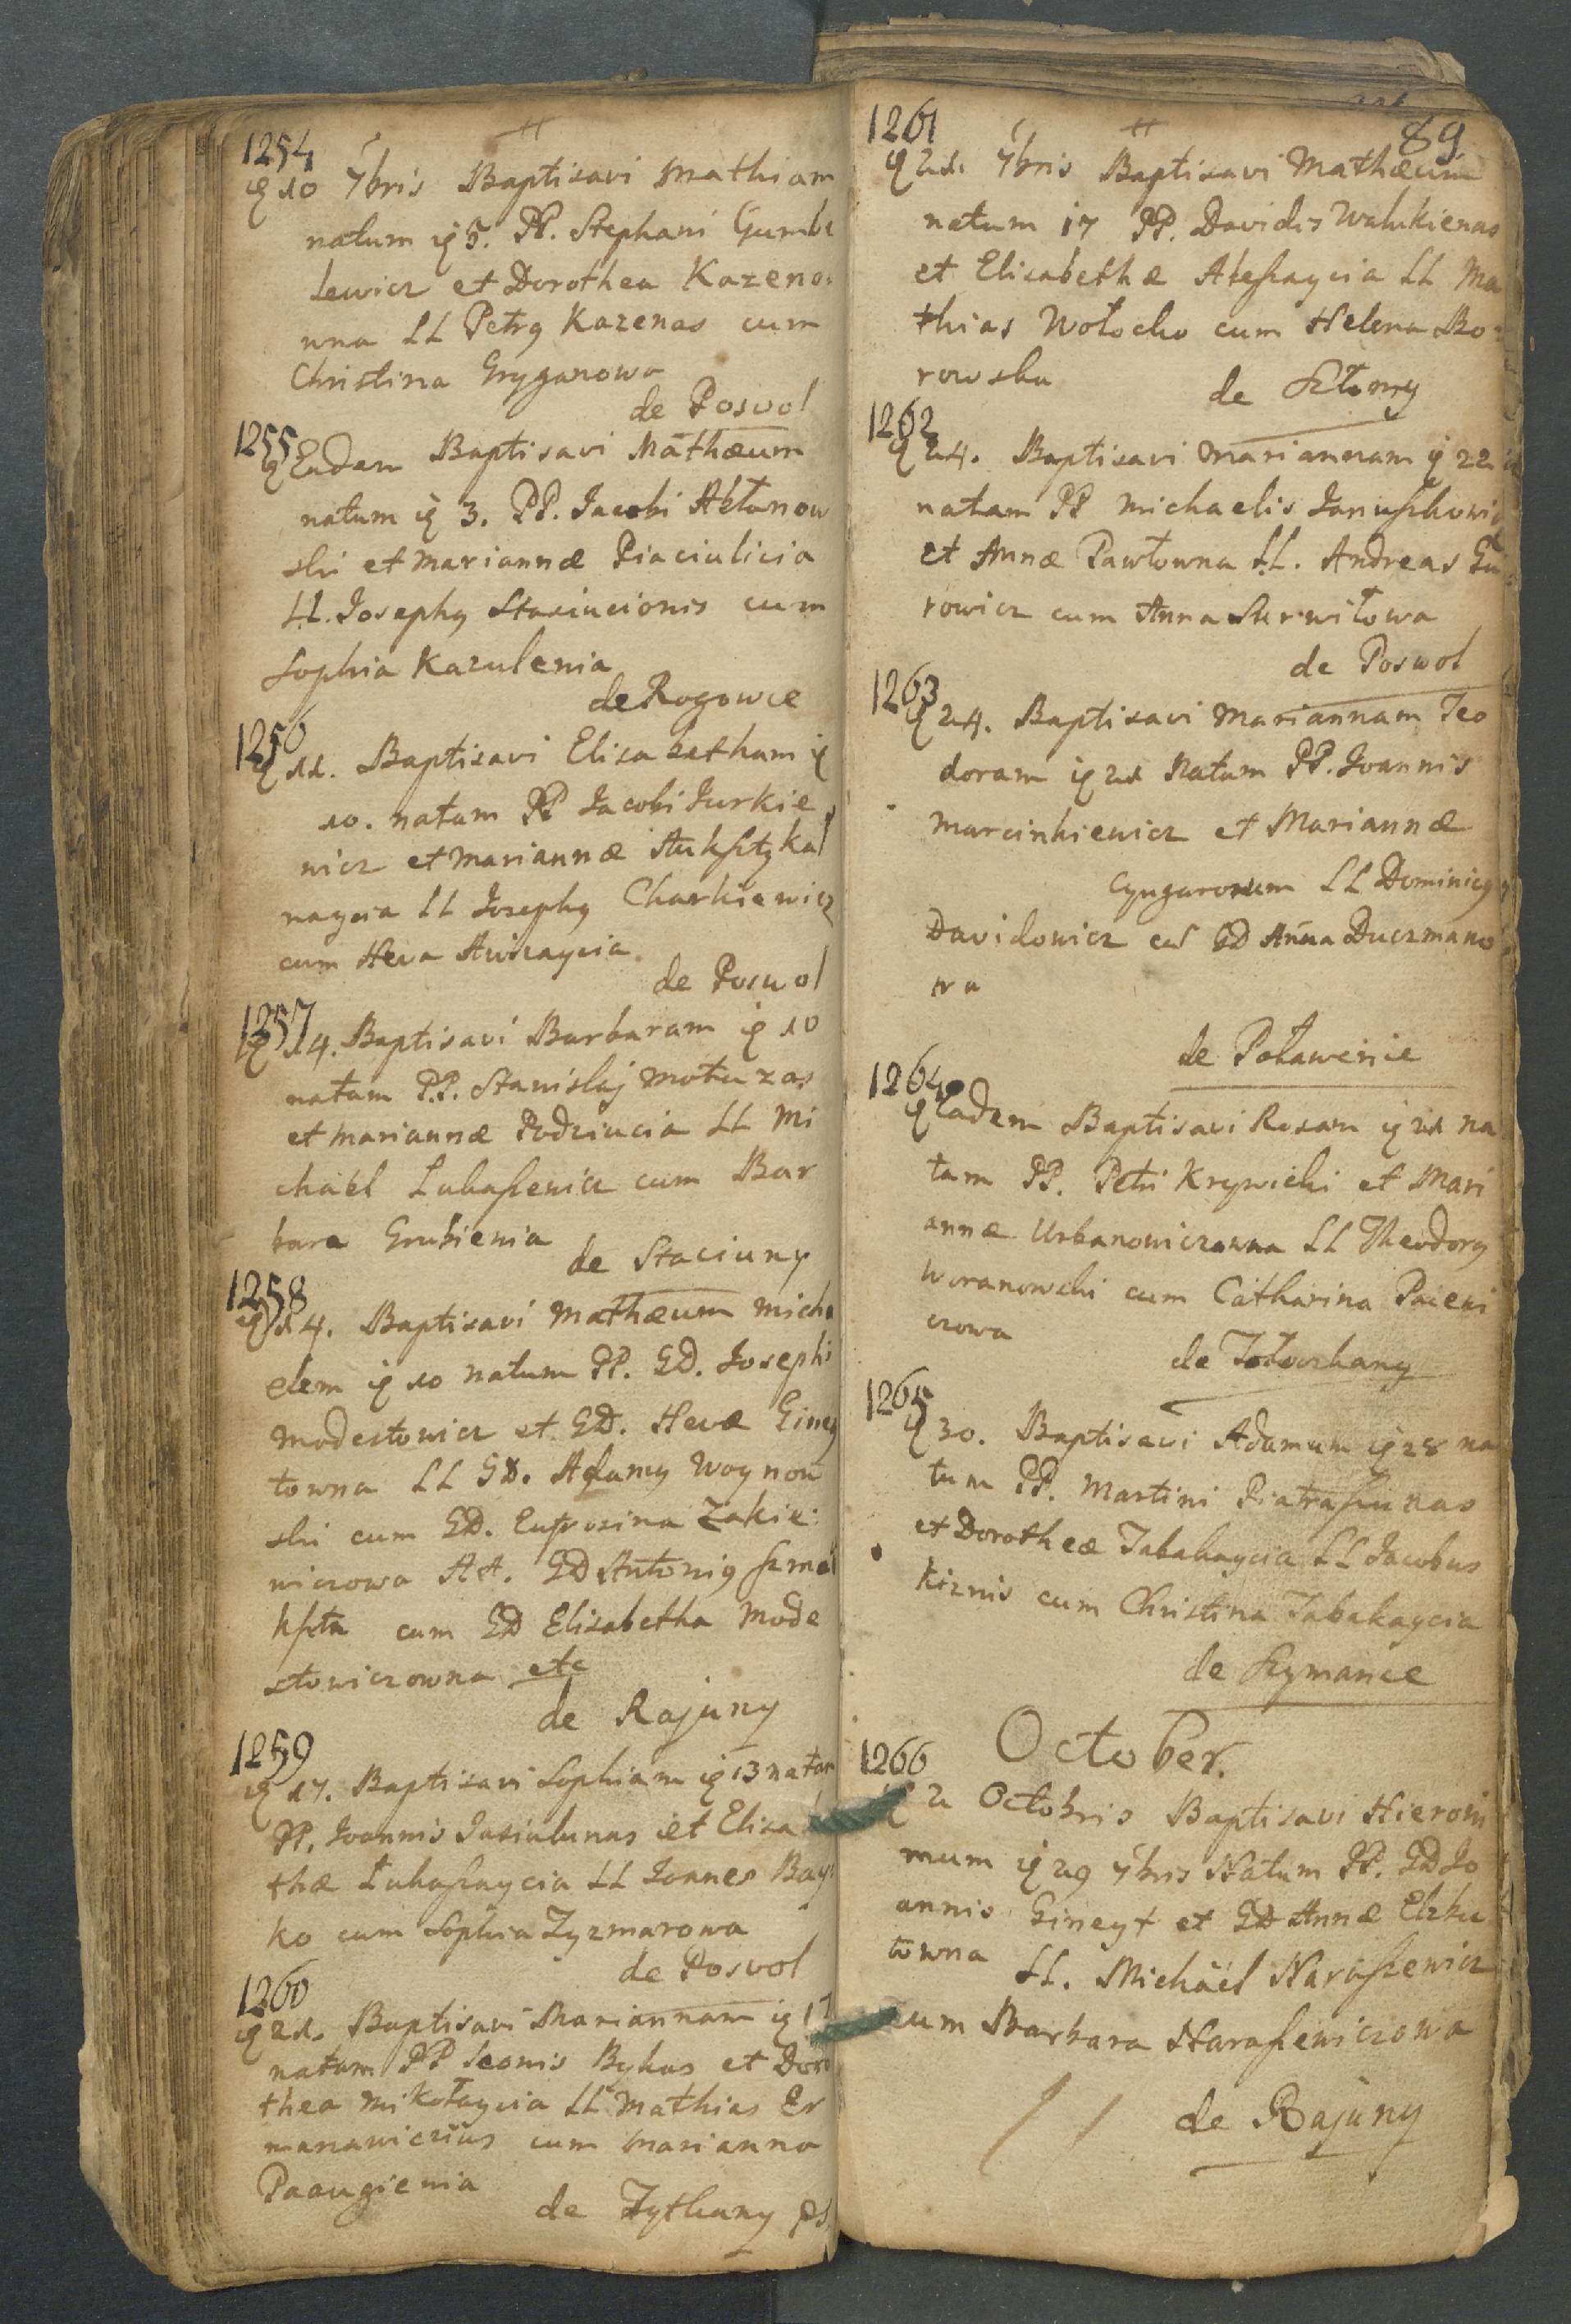 1254
10 7bris Baptisavi Mathiam
natum 5. PP. Stephani Gumbe
lewicz et Dorothea Kazeno:
wna LL Petrg Kazenas cum
Christina Grygarowa
de Poswol
1255
Eadem Baptisavi Mathæum
natum 3. PP. Jacobi Abłanow
ski et Mariannæ Piaciulicia
LL. Josephg Stasiucionis cum
Sophia Kazulenia
de Rogowce
1256
11. Baptisavi Elisabetham
10. natam PP Jacobi Jurkie
wicz et Mariannæ Aukſztykal
naycia LL Josephg Charkiewicz
cum Heva Awizaycia.
de Poswol
1257
14. Baptisavi Barbaram 10
natam P.P. Stanislaj Motuzas
et Mariannæ Podziucia LL Mi
chaël Lukaſzewicz cum Bar
bara Grubienia
de Staciuny
1258
14. Baptisavi Mathæum Micha
elem 10 natum PP. GD. Josephi
Modestowicz et GD. Hevæ Giney
towna LL GD. Adamg Woynow
ski cum GD. Eufrozina Zakie:
wiczowa AA. GD Antonig
cum GD Elisabetha Mode
stowiczowna etc
de Rajuny
1259
17. Baptisavi Sophiam 13 natam
PP. Joannis Jasiulunas et Elisa
thæ Łukaſzaycia LL Joannes Bay
ko cum Sophia Zyzmarowa
de Poswol
1260
21. Baptisavi Mariannam 17
natam PP Leonis Bykas et Doro
thea Mikołaycia LL Mathias Er
manawiczius cum Marianna
Paaugienia
de Zytkuny
1261
89
21. 7bris Baptisavi Mathæum
natum 17 PP. Davidis Walukienas
et Elisabethæ Alekſaycia LL Ma
thias Wołocko cum Helena Bo
rowska
de Szłomy
1262
24. Baptisavi Mariannam 22
natam PP Michaelis Januſzkowicz
et Annæ Pawłowna LL. Andreas Gu
rowicz cum Anna Surwiłowa
de Poswol
1263
24. Baptisavi Mariannam Teo
doram 21 Natam PP. Joannis
Marcinkiewicz et Mariannæ
LL Dominicg
Davidowicz GD Anna Duczmano
wa
de Poławenie
1264
Eadem Baptisavi Rosam 21 na
tam PP. Petri Krywicki et Mari
annæ Urbanowiczowna LL Theodorg
Woranowski cum Catharina Pacewi
czowa
de Tołoczkany
1265
30. Baptisavi Adamum 28 na
tum PP. Martini Piatraſzunas
et Dorotheæ Tabakaycia LL Jacobus
Kirnis cum Christina Tabakaycia
de Szymance
October.
1266
2 Octobris Baptisavi Hieroni
mum 29 7bris Natum PP. GD Jo
annis Gineyt et GD Annæ Elzbu
towna LL. Michaël Haraſzewicz
cum Barbara Haraſzewiczowa
de Rajuny